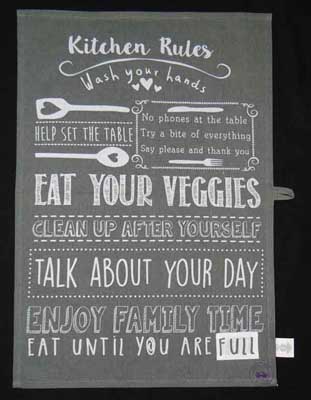 Kitchen Rules
Wash your hands
HELP SET THE TABLE
No phones at the table
Try a bite of everything
Say please and thank you
EAT YOUR VEGGIES
CLEAN UP AFTER YOURSELF
TALK ABOUT YOUR DAY
ENJOY FAMILY TIME
EAT UNTIL YOU ARE FULL